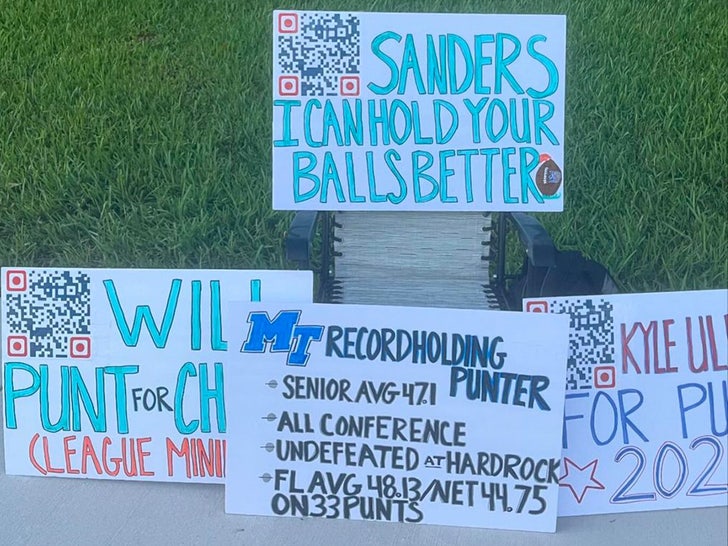 SANDERS
I CAN HOLD YOUR
BALLS BETTER
WILL
PUNT FOR CH
(LEAGUE MINI
MT RECORDHOLDING
PUNTER
- SENIOR AVG 47.1
- ALL CONFERENCE
- UNDEFEATED AT HARDROCK
- FL AVG 48.13/NET 44.75
ON 33 PUNTS
KYLE UL
FOR PU
202